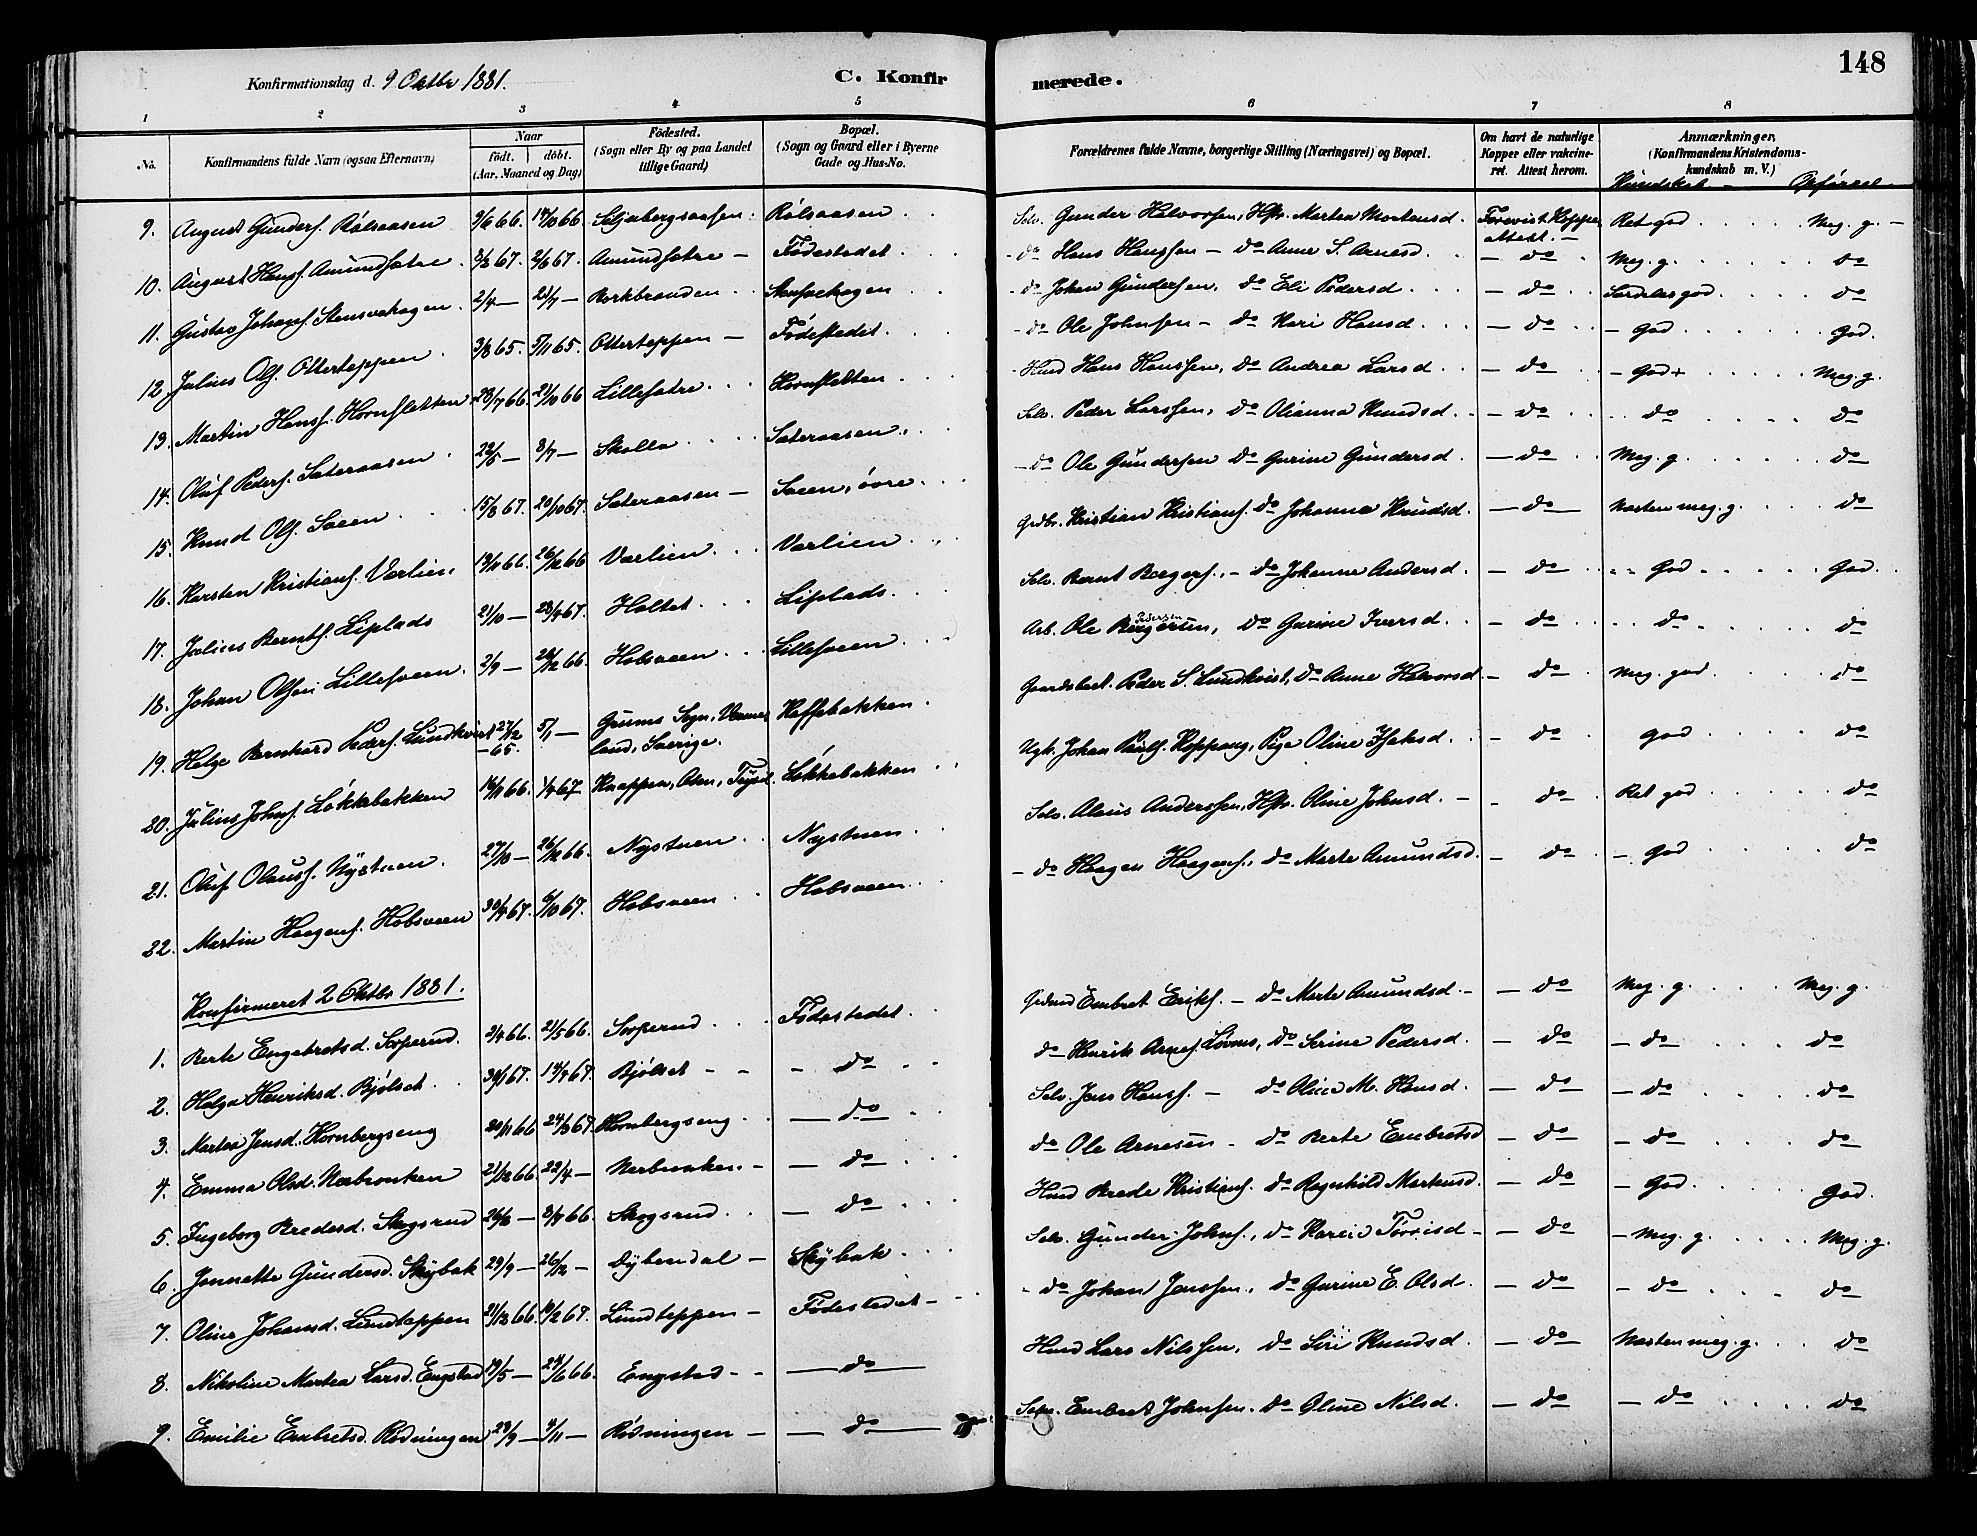 148
Konfirmationsdag d. 9 Oktbr 1881.
C. Konfirmerede.
1 2 3 4 5 6 7 8
No. Konfirmandens fulde Navn (ogsaa Efternavn) Naar födt. döbt. (Aar, Maaned og Dag) Födested. (Sogn eller By og paa Landet tillige Gaard) Bopæl. (Sogn og Gaard eller i Byerne Gade og Hus-No. Forældrenes fulde Navne, borgerlige Stilling (Næringsvei) og Bopæl. Om havt de naturlige Kopper eller vakcineret. Attest herom. Anmærkninger. (Konfirmandens Kristendomskundskab m. V.)
Kundskab — Opførsel
9. August Gunders. Rølsaasen 3/6 66. 14/10 66 Rølsaasen Selv. Gunder Halvorsen, Hst. Martea Mortensd. Forevist Koppeattest. — Ret god Meg. g. —
10. August Hanss. Amundsætre 3/3 67. 2/6 67. Amundsætre — Fødestedet — do Hans Hanssen — do Anne S. Arnesd — do Meg. g. do
11. Gustav Johans. Stensvehagen 2/4 — 21/7 — Berkbraaden Stensvehagen — do Johan Gundersen, do Eli Pedersd — do Særdeles god do
12. Julius Ols. Otterteppen 3/8 65. 5/11 65. Otterteppen — Fødestedet — do Ole Johnsen — do Kari Hansd — do — God God.
13. Martin Hanss. Hornsletten 28/7 66. 21/10 66 Lillesætre Hornsletten Husmd Hans Hanssen, do Andrea Larsd — do — God + Meg. g.
14. Oluf Peders. Sæteraasen 22/5 — 8/7 — Skolla Sæteraasen Selv. Peder Larssen, do Olianna Knudsd — do do do
15. Knud Ols. Sveen 15/8 67. 20/10 67. Sæteraasen — Sveen, övre — do Ole Gundersen do Gurine Gundersd — do Meg. g do
16. Karsten Kristians. Værlien 19/11 66. 26/12 66 Værlien Værlien Grdbr. Kristian Kristians. do Johanna Knudsd. — do — Næsten meg. g. do
17. Julius Bernts. Liplads 21/10 — 23/4 67. Holtet Liplads Selv. Bernt Bergers. — do Johanne Andersd — do God God
18. Johan Olsen Lillesveen 2/9 — 26/12 66. Habsveen Lillesveen Arb. Ole Pedersen, do Gurine Iversd. — do do do
19. Helge Bernhard Peders. Lundkvist 27/12 — 65. 5/1 — Grums Sogn, Vermeland, Sverige. Kaffebakken Gaardsbest. Peder S. Lundkvist, do Anne Halvorsd. — do Meg. god do
20. Julius Johns. Løkkebakken 16/11 66. 1/4 67. Knappen, Osen, Trysil Løkkebakken Ugk. Johan Pauls. Koppang, Pige Oline Isaksd. — do god do
21. Oluf Olauss. Nystuen 27/10 — 26/12 66. Nystuen Nystuen Selv. Olaus Anderssen, Hst. Oline Johnsd. — do Ret god do
22. Martin Haagens. Habsveen 30/4 67. 6/10 67. Habsveen Habsveen — do Haagen Haagens., do Marte Amundsd. — do — God do
Konfirmeret 2 Oktbr 1881.
1. Berte Engebretsd. Sorperud. 2/4 66. 21/5 66. Sorperud Fødestedet Grdmd Embret Eriks. — do Marte Amundsd. — do Meg. g. Meg. g.
2. Helga Henriksd. Bjølset 30/1 67. 19/4 67. Bjølset — do — do Henrik Arnes. Lovens, do Serine Pedersd. — do — do do
3. Martea Jensd. Hornbergseng 20/11 66 24/3 67. Hornbergseng — do Selv. Jens Hanss. — do Oline M. Hansd. — do — do do
4. Emma Olsd. Nærbronken 21/12 66. 22/4 — Nærbronken — do do Ole Arnesen — do Berte Embretsd — do — do do
5. Ingeborg Bredesd. Skogsrud 26/3 — 8/7 66. Skogsrud — do Husmd Brede Kristians. do Ragnhild Markusd. — do — God God.
6. Jonnette Gundersd. Skybak 29/9 — 26/12 — Dybendal — Skybak Selv. Gunder Johns., do Karen Torrisd — do — Meg. g. Meg. g.
7. Oline Johansd. Lundteppen 21/12 66. 10/2 67. Lundteppen — Fødestedet — do Johan Jenssen, do Gurine E. Olsd. — do — do do
8. Nikoline Martea Larsd. Engstad 19/5 — 24/6 66. Engstad — do Husmd Lars Nilssen, do Siri Knudsd — do Næsten meg. g. do
9. Emilie Embretsd. Rødningen 23/9 — 4/11 — Rødningen — do Embret Johnsen do Oline Nilsd. — do — do do